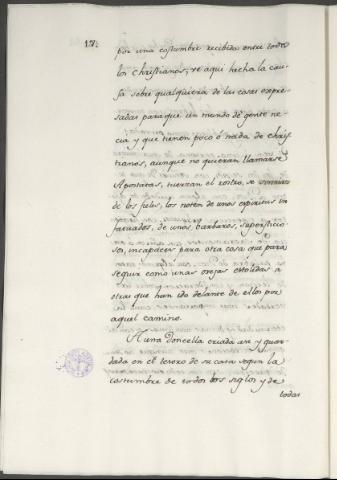 17.
por una costumbre recibida entre todos
los Christianos, ve aqui hecha la cau-
sa sobre qualquiera de las cosas expre-
sadas para que un mundo de gente ne-
cia y que tienen poco ó nada de chris-
tianos, aunque no quieran llamarse
Apostatas, tuerzan el rostro, se
de los fieles, los noten de unos espiritus in
fatuados, de unos barbaros, supersticio
sos, incapaces para otra cosa que para
seguir como unas ovejas a
otras que han ido delante de ellos por
aquel camino.
A una Doncella criada asi y guar-
dada en el tesoro de su casa segun la
costumbre de todos los siglos y de
todas